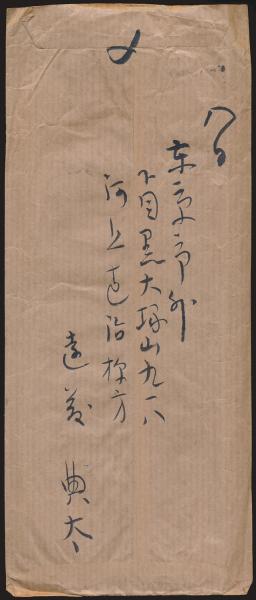 〆
八日
東京市外
下目黒大塚山九一八
河上直治様方
遠藤典太